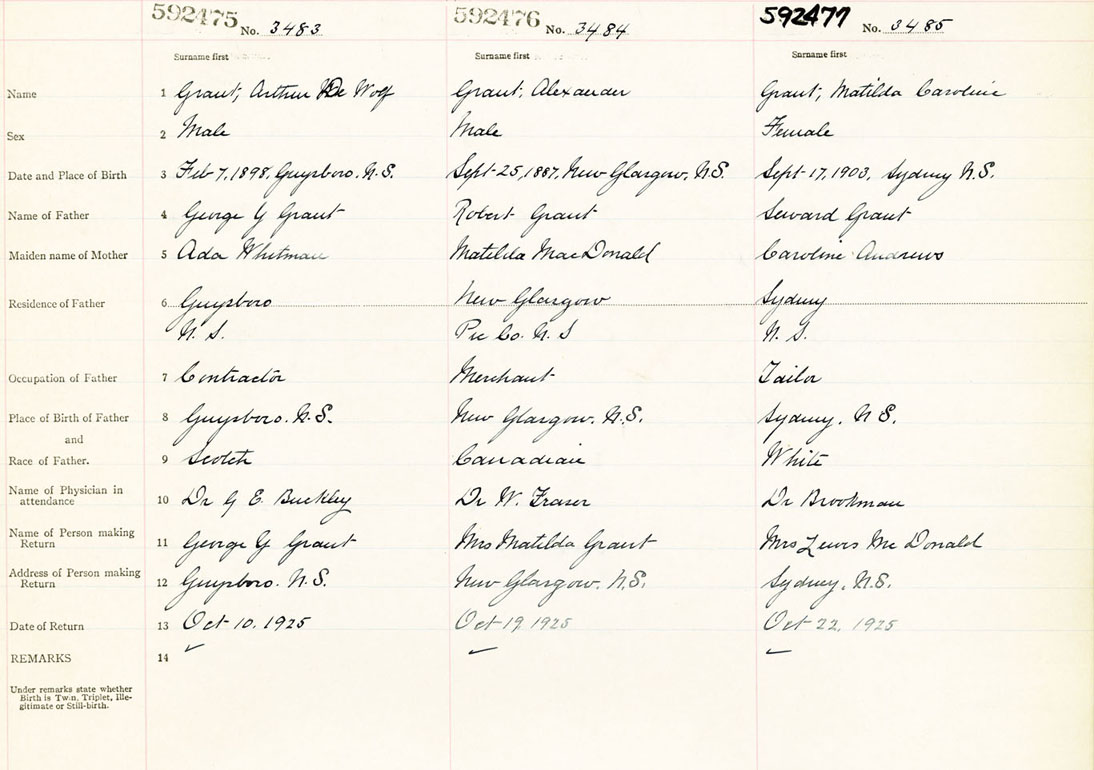 592475 No. 3483 592476 No. 3484 592477 No. 3485
Surname first Surname first Surname first
Name 1 Grant, Arthur De Wolf Grant, Alexander Grant, Matilda Caroline
Sex 2 Male Male Female
Date and Place of Birth 3 Feb 7, 1898, Guysboro. N.S. Sept 25, 1887, New Glasgow, N.S. Sept 17, 1903, Sydney N.S.
Name of Father 4 George G Grant Robert Grant Seward Grant
Maiden name of Mother 5 Ada Whitman Matilda MacDonald Caroline Andrews
Residence of Father 6 Guysboro New Glasgow Sydney
N. S. Pic Co. N. S N. S.
Occupation of Father 7 Contractor Merchant Tailor
Place of Birth of Father 8 Guysboro. N.S. New Glasgow. N.S. Sydney. N S.
and
Race of Father. 9 Scotch Canadian White
Name of Physician in attendance 10 Dr G E. Buckley Dr W. Fraser Dr Brookman
Name of Person making Return 11 George G Grant Mrs Matilda Grant Mrs Lewis Mc Donald
Address of Person making Return 12 Guysboro. N.S. New Glasgow. N.S. Sydney, N.S.
Date of Return 13 Oct 10, 1925 Oct 19, 1925 Oct 22, 1925
REMARKS 14
Under remarks state whether
Birth is Twin, Triplet, Ille-
gitimate or Still-birth.